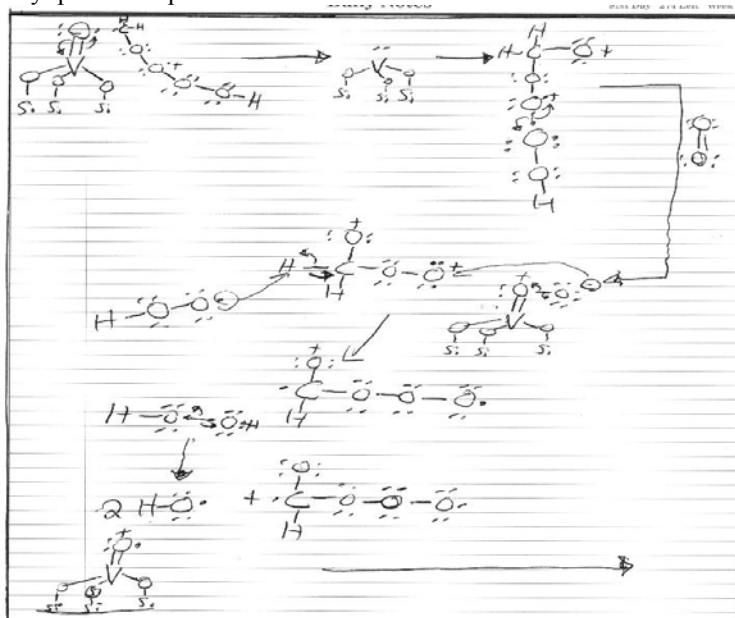 Daily Notes
H
C-H
O
V
O
O
O
O
Si Si Si
O
O
O
O-H
V
O O O
Si Si Si
H
H-C-O+
O
O+
O
O
H
O
O
+
O
H-C-O-O+
H
H-O-O
+
O-O
V
O O O
Si Si Si
+
O
C-O-O-O
H
H-O-O-H
2 H-O + C-O-O-O
O
H
+
O
V
O O O
Si Si Si